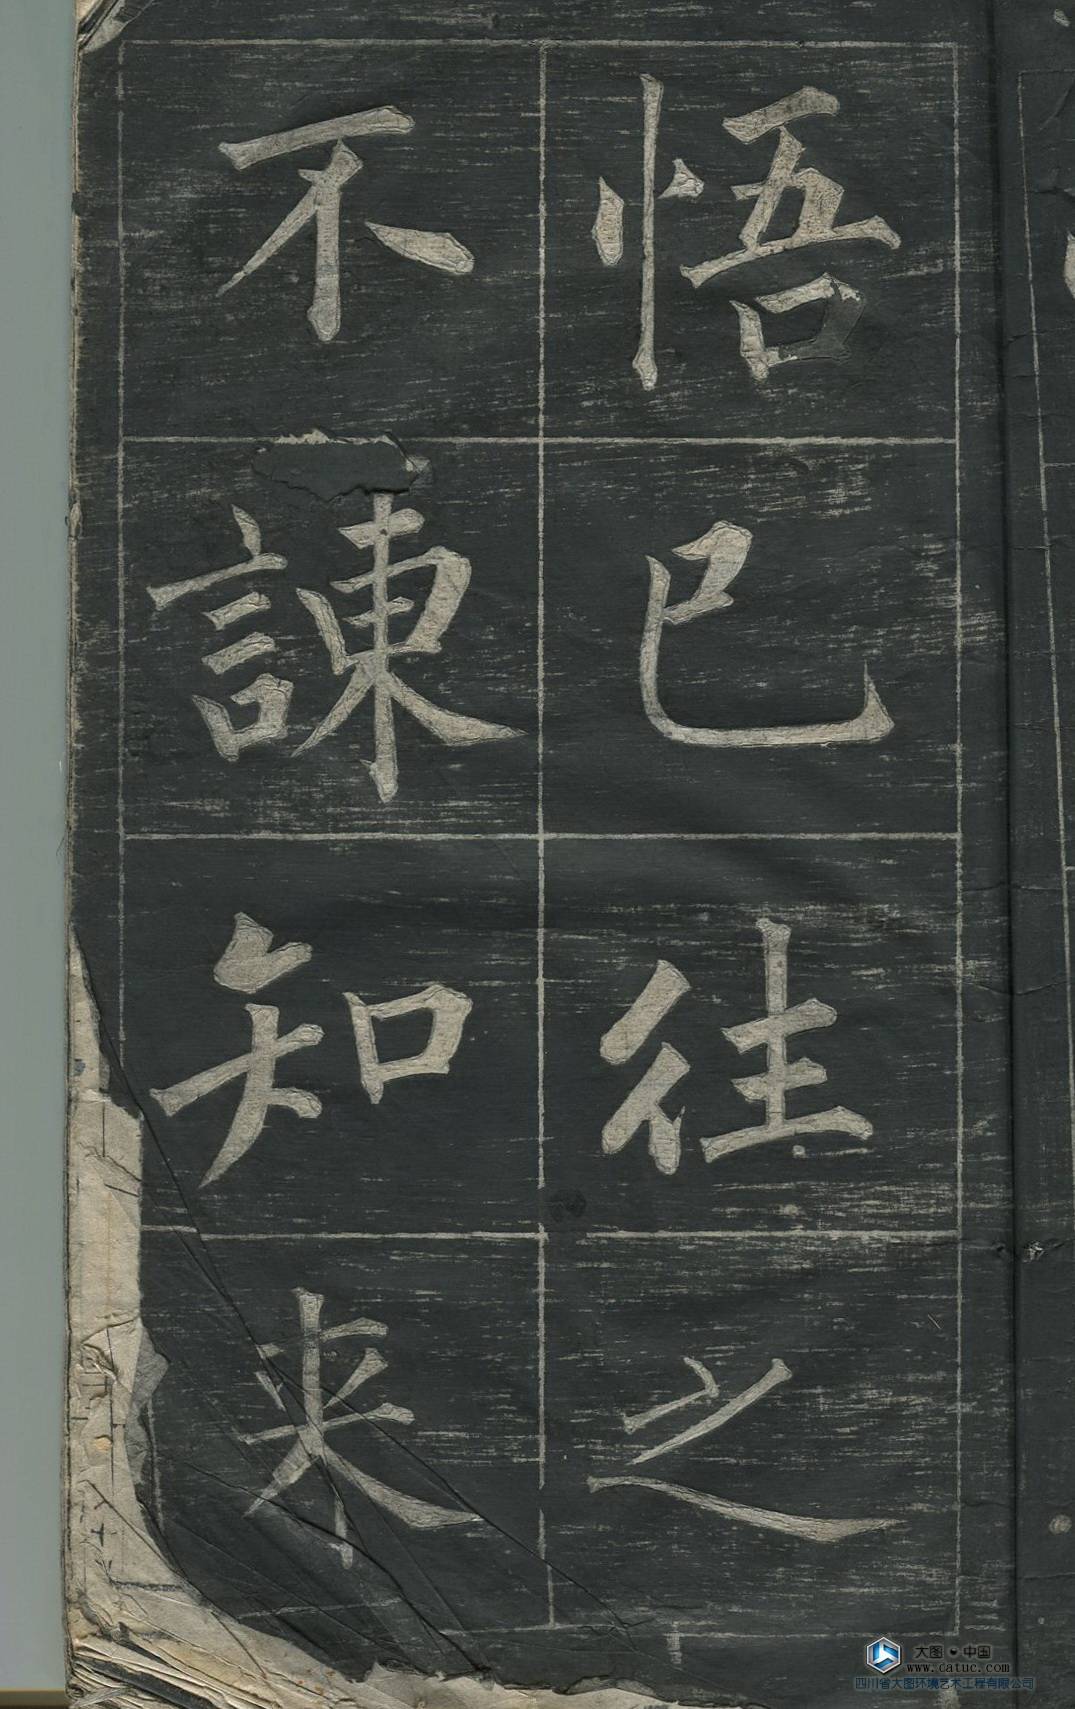 悟已往之
不諫知来
大图·中国
www.catuc.com
四川省大图环境艺术工程有限公司